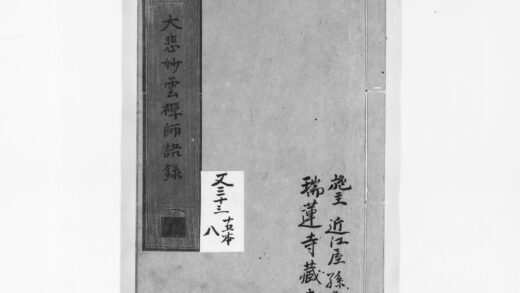 施主 近江屋孫
瑞蓮寺藏
大悲妙雲禪師語録
又三十三
十五本
八